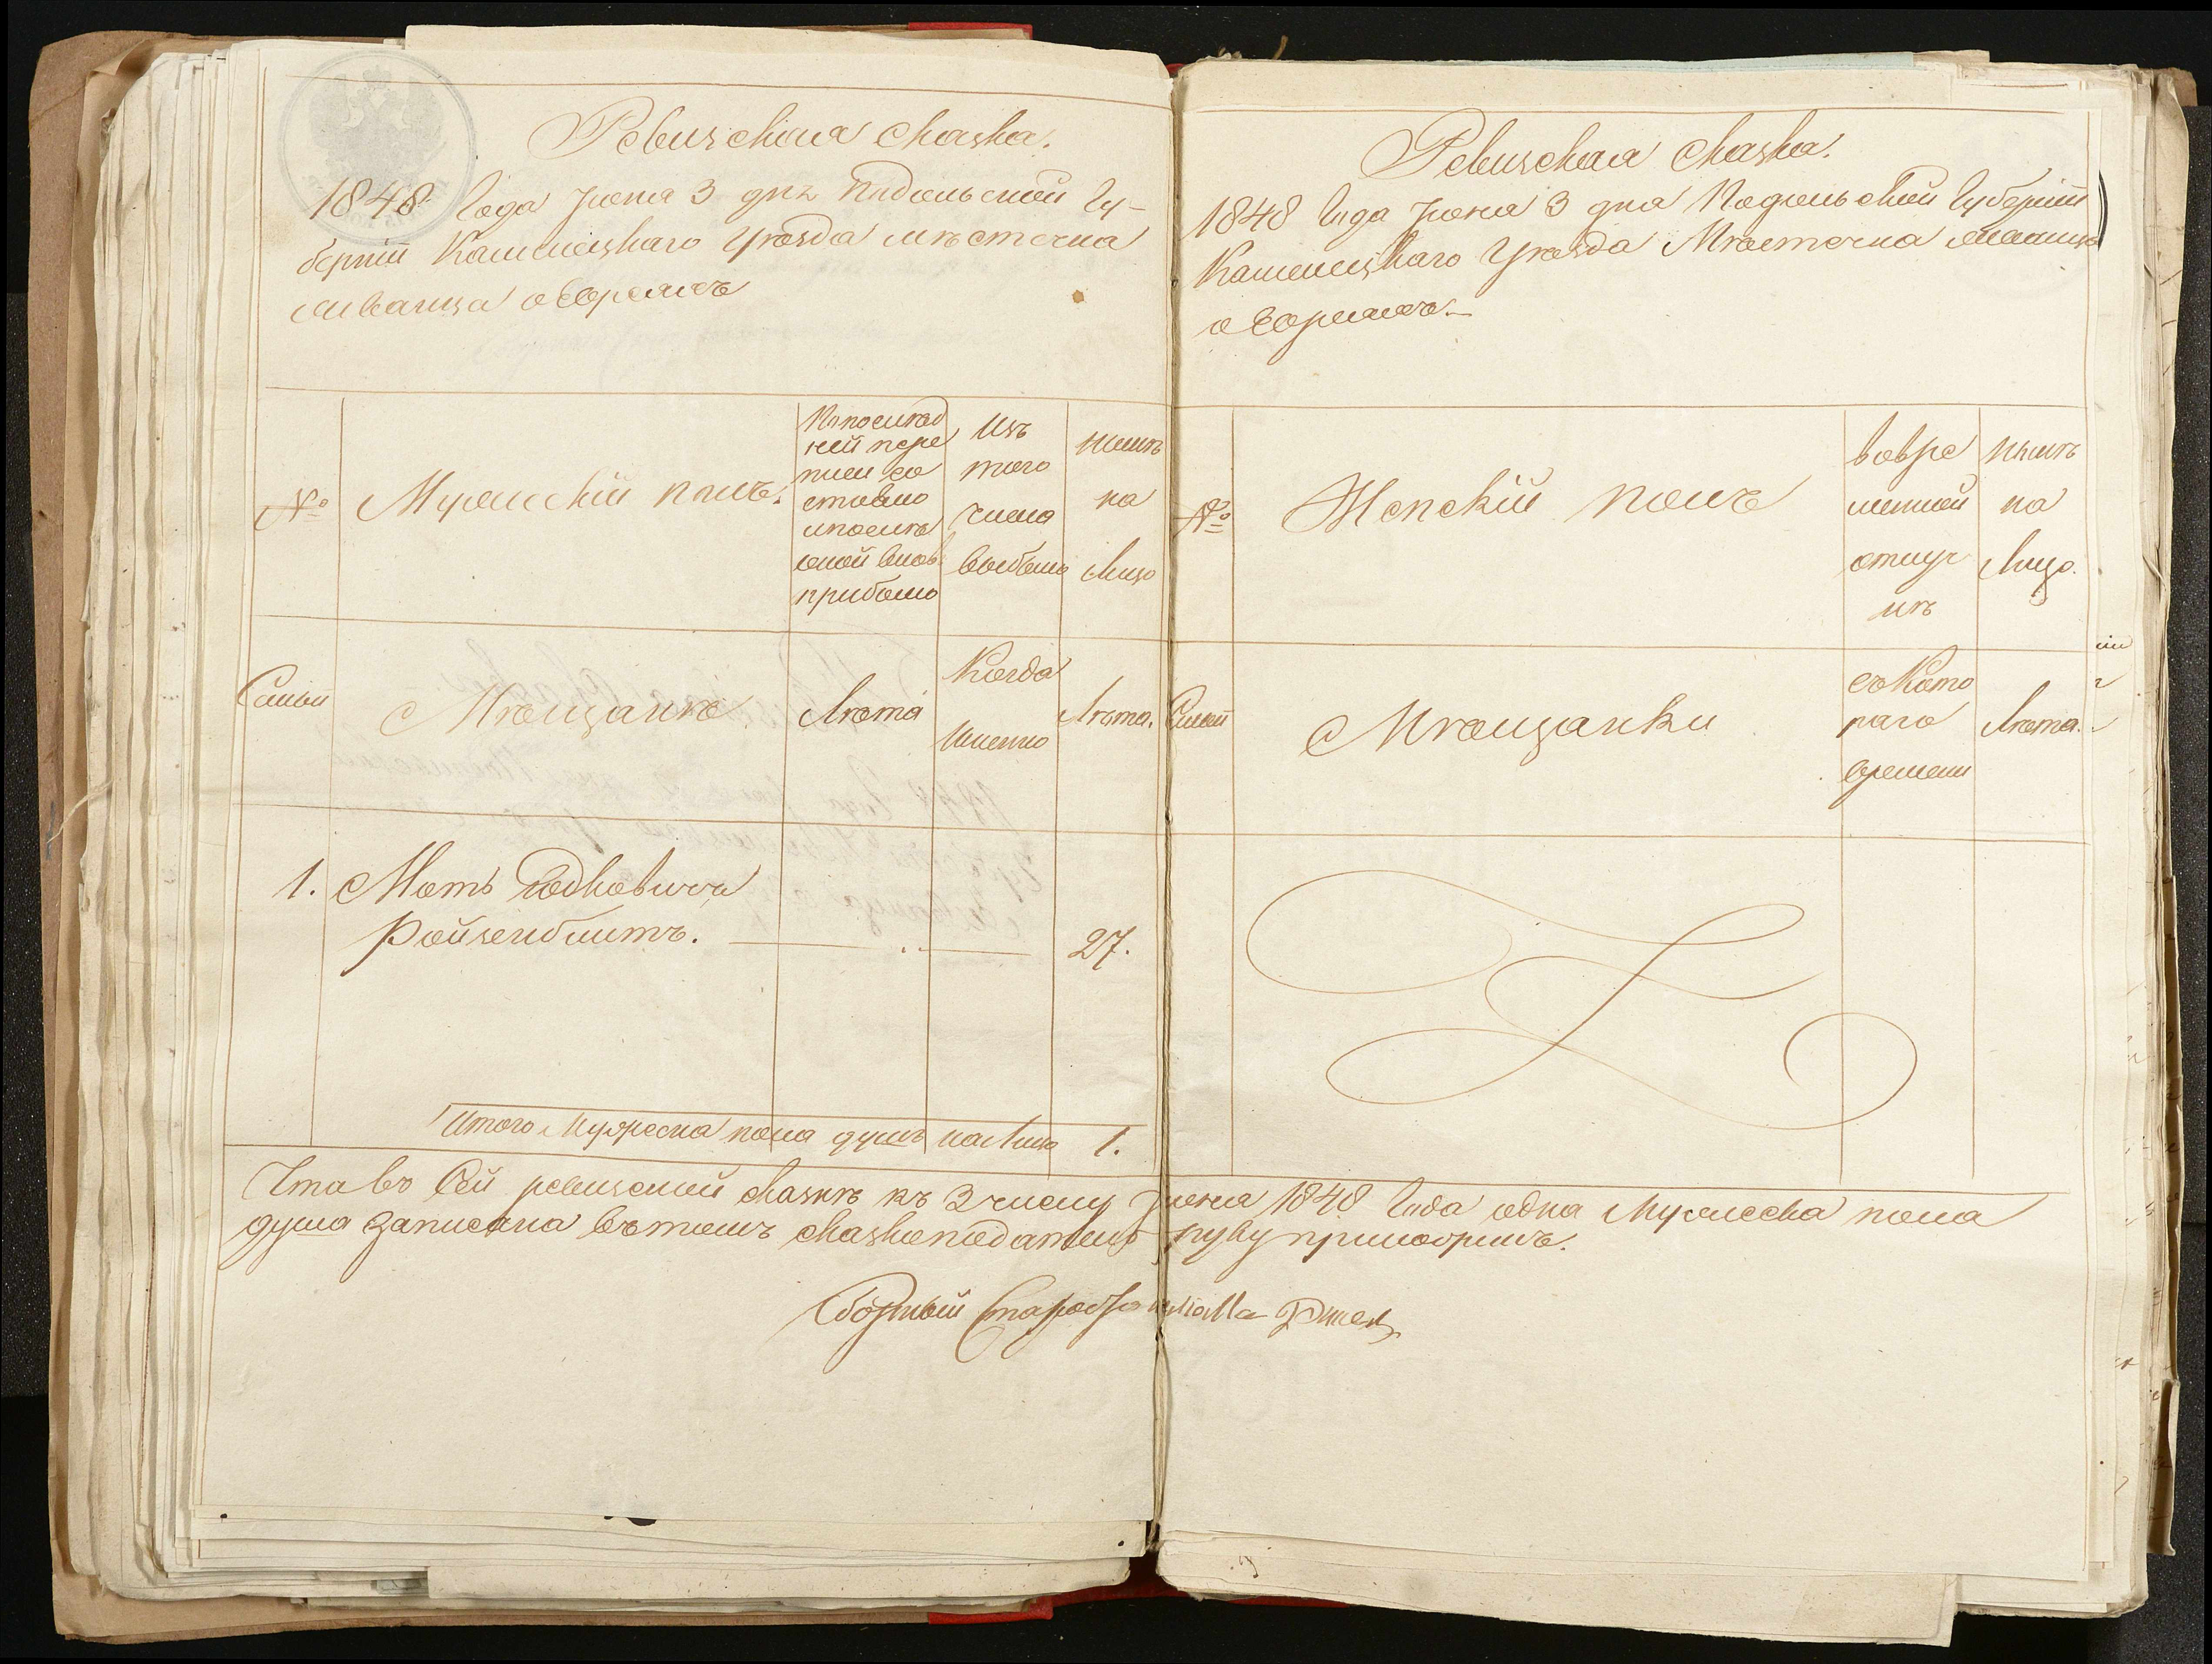 Ревизская сказка.
1848 года Июня 3 дня Подольской Гу-
берніи Каменецкаго Уѣзда мѣстечка
Жванца о Евреяхъ
№
Мужескій полъ.
По послѣд
ней пере
писи со
стояло
и послѣ
оной вновь
прибыло
Изъ
того
числа
выбыло
Нынѣ
на
Лицо
Семьи
Мѣщане
Лѣта
Когда
Именно
Лѣта.
1.
Мотъ
Ройзенблитъ. 27.
Итого Мужеска пола душъ на Лицо 1.
Ревизская Сказка.
1848 Года Июня 3 дня Подольской Губерніи
Каменецкаго Уѣзда Мѣстечка Жванца
о Евреяхъ.
№
Женскій полъ
во вре
менной
отлуч
кѣ
Нынѣ
на
Лицо.
Семьи
Мѣщанки
съ Кото
раго
времени
Лѣта.
Что въ Сей ревизской сказкѣ къ 3 числу Июня 1848 Года одна Мужеска пола
душа Записана въ томъ сказкоподатель руку приложилъ.